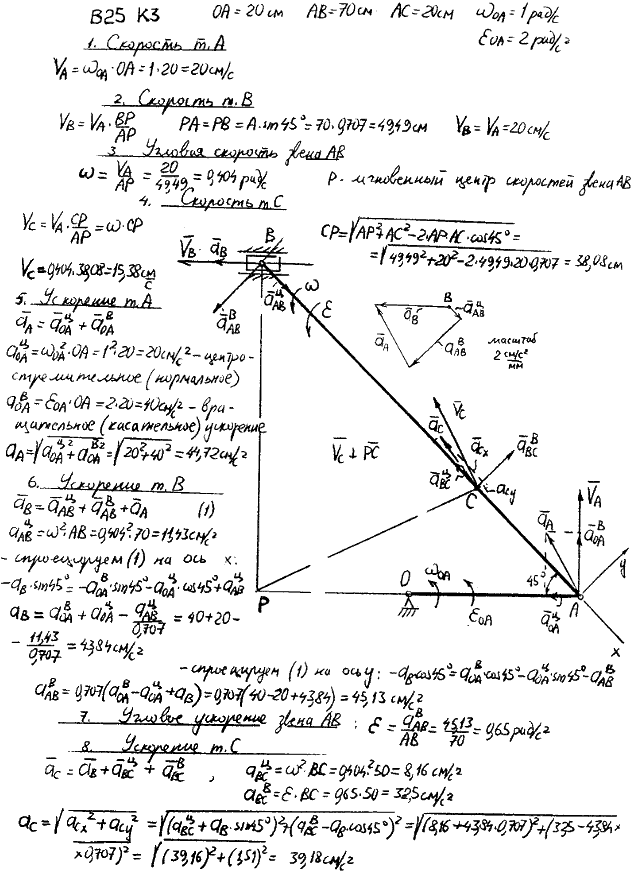 В25 К3 OA = 20 см AB = 70 см AC = 20 см ω_OA = 1 рад/с
ε_OA = 2 рад/с²
1. Скорость т. А
V_A = ω_OA · OA = 1 · 20 = 20 см/с
2. Скорость т. В
V_B = V_A · BP/AP PA = PB = A. sin 45° = 70 · 0,707 = 49,49 см V_B = V_A = 20 см/с
3. Угловая скорость звена АВ
ω = V_A/AP = 20/49,49 = 0,404 рад/с P - мгновенный центр скоростей звена АВ
4. Скорость т. С
V_C = V_A · CP/AP = ω · CP
CP = √(AP² + AC² - 2 · AP · AC · cos 45°) =
= √(49,49² + 20² - 2 · 49,49 · 20 · 0,707) = 38,08 см
V_C = 0,404 · 38,08 = 15,38 см/с
5. Ускорение т. А
ā_A = ā^ц_OA + ā^в_OA
a^ц_OA = ω²_OA · OA = 1² · 20 = 20 см/с² - центро-
стремительное (нормальное)
a^в_OA = ε_OA · OA = 2 · 20 = 40 см/с² - вра-
щательное (касательное) ускорение
a_A = √(a^ц_OA² + a^в_OA²) = √(20² + 40²) = 44,72 см/с²
6. Ускорение т. В
ā_B = ā^ц_AB + ā^в_AB + ā_A (1)
a^ц_AB = ω² · AB = 0,404² · 70 = 11,43 см/с²
- спроецируем (1) на ось x:
-a_B · sin 45° = -a^в_OA · sin 45° - a^ц_OA · cos 45° + a^ц_AB
a_B = a^в_OA + a^ц_OA - a^ц_AB/0,707 = 40 + 20 -
- 11,43/0,707 = 43,84 см/с²
- спроецируем (1) на ось y: -a_B cos 45° = a^в_OA cos 45° - a^ц_OA sin 45° - a^в_AB
a^в_AB = 0,707(a^в_OA - a^ц_OA + a_B) = 0,707(40 - 20 + 43,84) = 45,13 см/с²
7. Угловое ускорение звена АВ : ε = a^в_AB/AB = 45,13/70 = 0,65 рад/с²
8. Ускорение т. С
ā_C = ā_B + ā^ц_BC + ā^в_BC , a^ц_BC = ω² · BC = 0,404² · 50 = 8,16 см/с²
a^в_BC = ε · BC = 0,65 · 50 = 32,5 см/с²
a_C = √(a_Cx² + a_Cy²) = √((a^ц_BC + a_B · sin 45°)² + (a^в_BC - a_B · cos 45°)²) = √((8,16 + 43,84 · 0,707)² + (32,5 - 43,84 ×
× 0,707)²) = √((39,16)² + (1,51)²) = 39,18 см/с²
B
V̄_B
ā_B
ā^ц_AB
ā^в_AB
ω
ε
B
ā_B
ā^ц_AB
ā_A
ā^в_AB
масштаб
2 см/с²/мм
V̄_C
ā_C
ā_Cx
ā^в_BC
V̄_C ⊥ P̄C̄
ā^ц_BC
a_Cy
C
V̄_A
ā_A
ā^в_OA
y
O
ω_OA
45°
P
ε_OA
ā^ц_OA
A
x